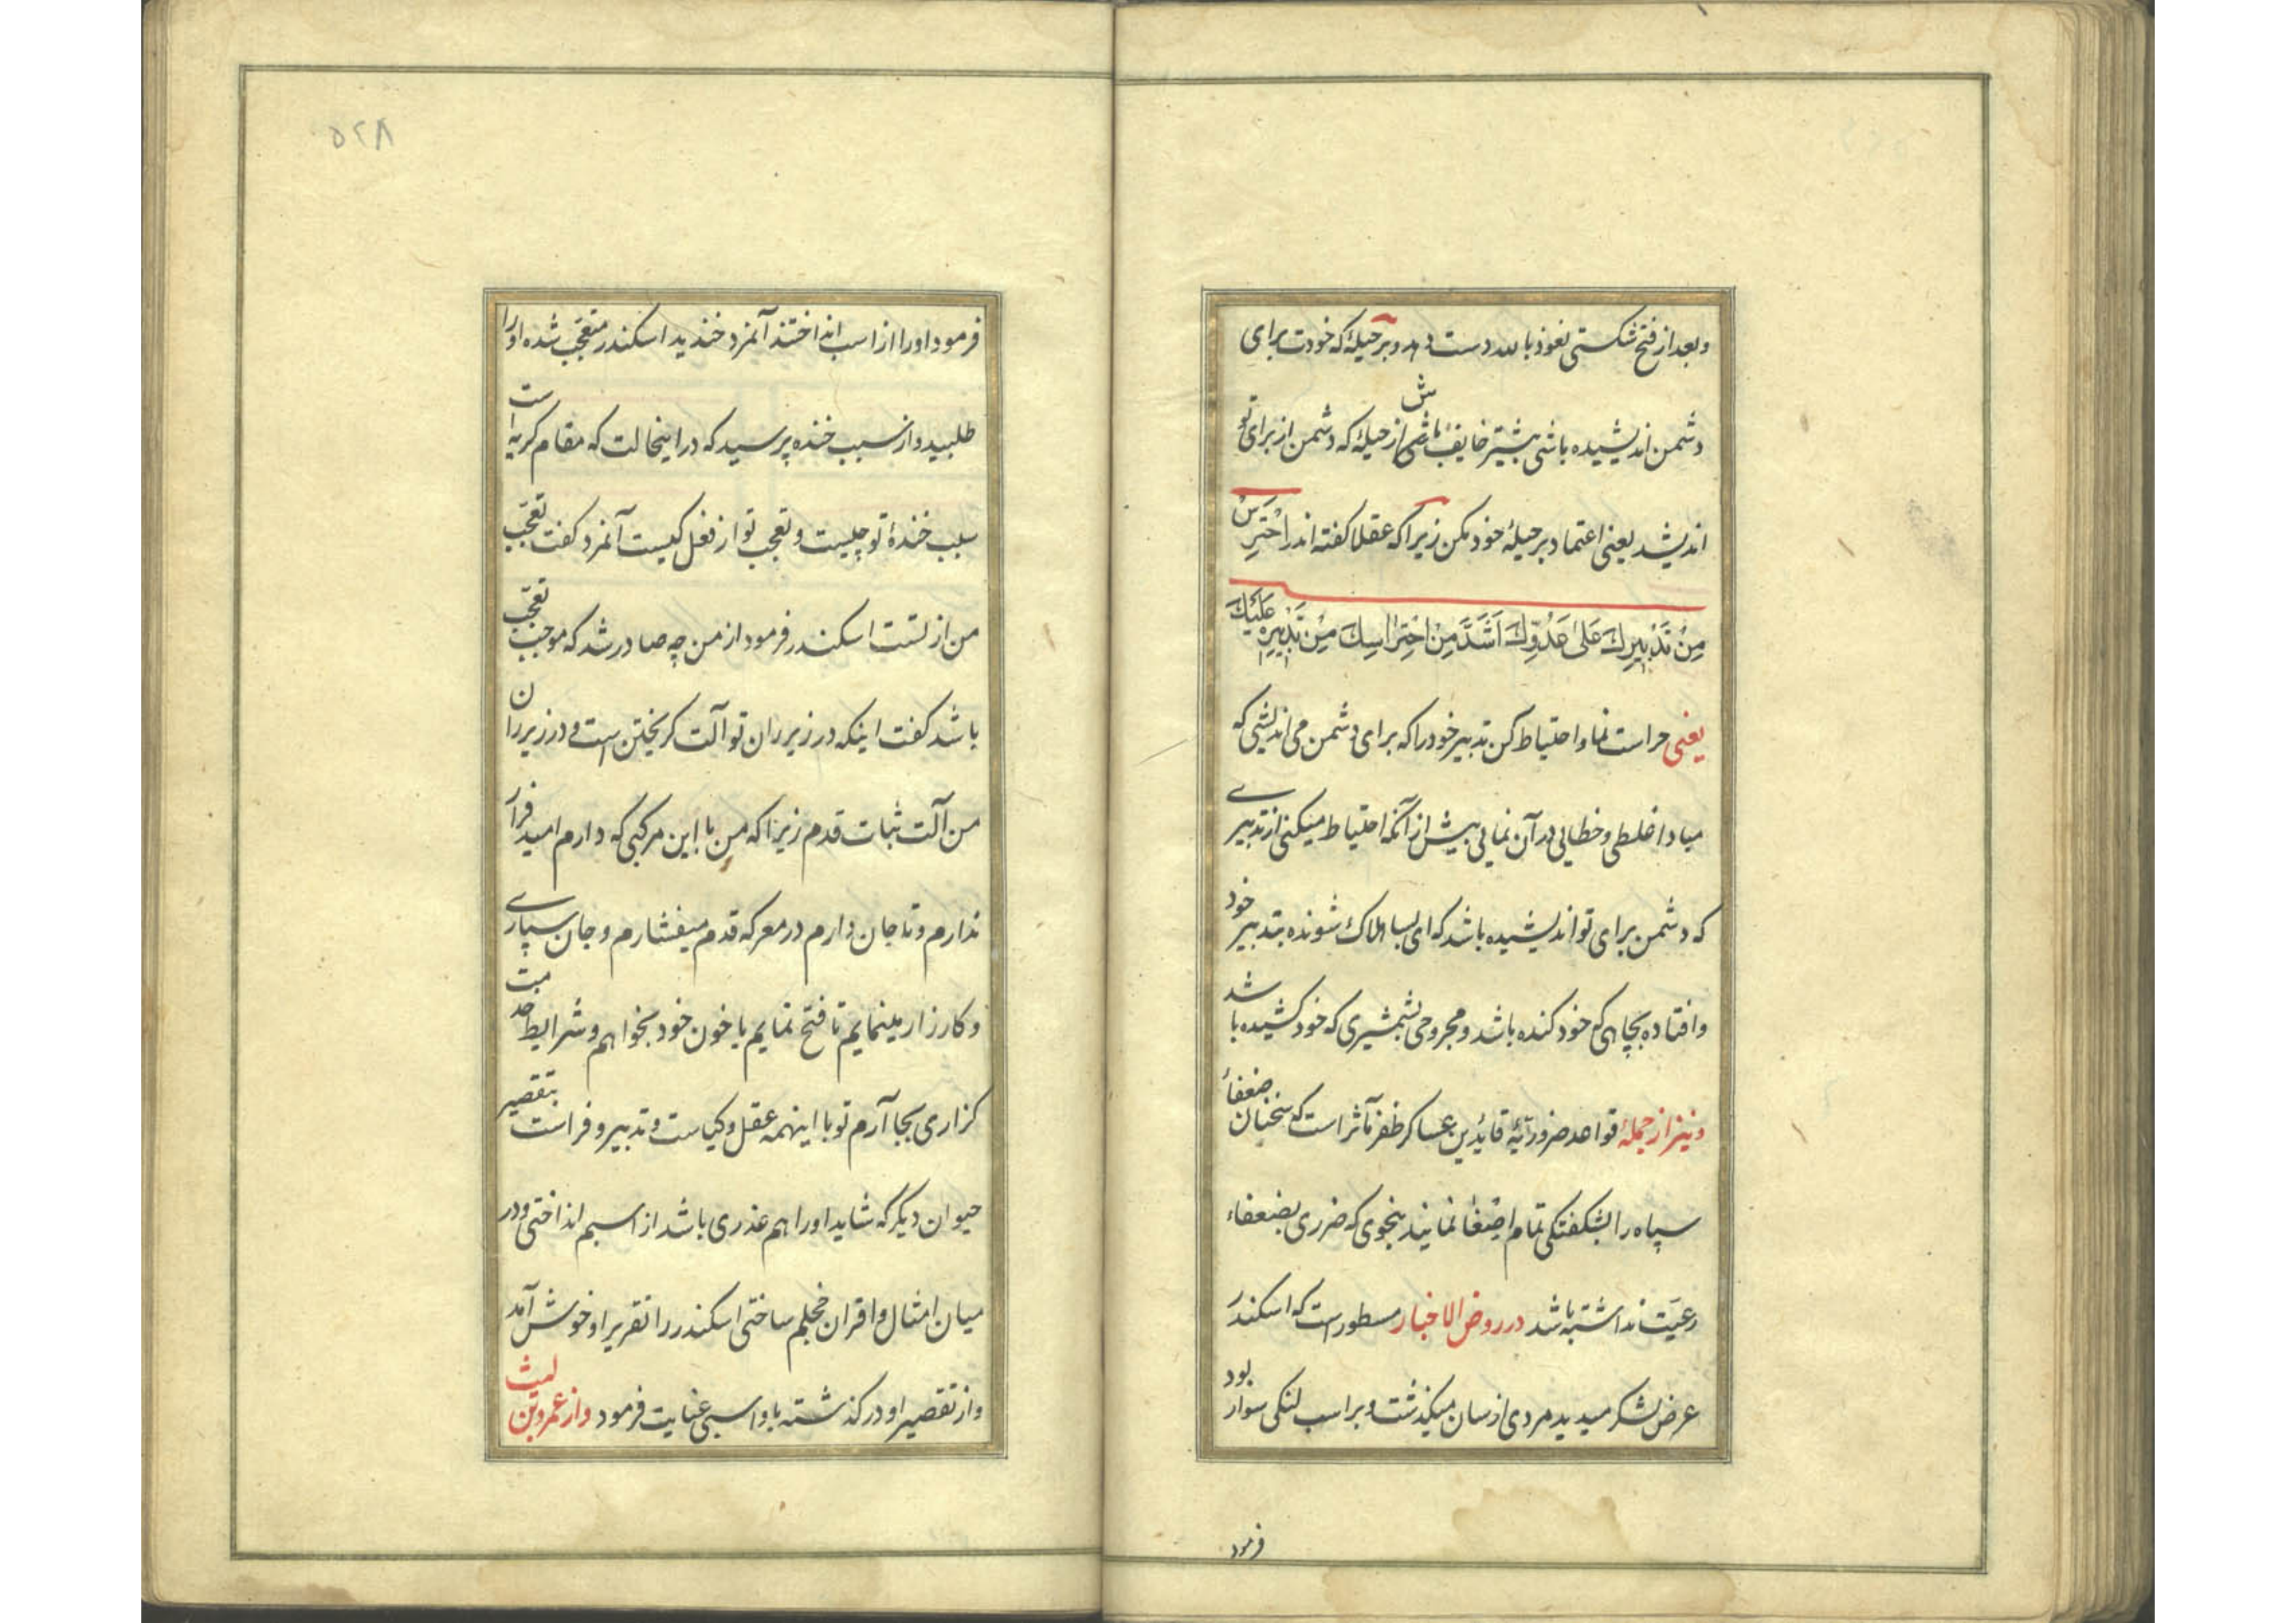 وبعد از فتح شکستی نعوذ بالله دست دهد وبر حیلۀ که خودت برای
دشمن اندیشیده باشی بیشتر خایف باش از حیلۀ که دشمن از برای تو
اندیشد یعنی اعتماد بر حیلۀ خود مکن زیرا که عقلا کفته اند اِحْتَرِسْ
مِنْ تَدْبِیرِكَ عَلیٰ عَدُوِّكَ اَشَدَّ مِنْ اِحْتِرٰاسِكَ مِنْ تَدْبِیرِهِ عَلَیْكَ
یعنی حراست نما و احتیاط کن تدبیر خود را که برای دشمن می اندیشی که
مبادا غلطی و خطایی در آن نمایی بیش از آنکه احتیاط میکنی از تدبیری
که دشمن برای تو اندیشیده باشد که ای بسا هلاك شونده بتدبیر خود
وافتاده بچاهی که خود کنده باشد و مجروحی بشمشیری که خود کشیده باشد
ونیز از جملۀ قواعد ضروریّۀ قایدین عساکر ظفر مآثر است که سخنان ضعفاء
سپاه را بشکفتکی تمام اصغا نمایند بنحوی که ضرری بضعفاء
رعیّت نداشته باشد در روض الاخبار مسطور است که اسکندر
عرض لشکر میدید مردی از سان میکذشت و بر اسب لنکی سوار بود
فرمود
۵۲۸
فرمود اورا از اسب انداختند آنمرد خندید اسکندر متعجّب شده اورا
طلبید و از سبب خنده پرسید که در اینحالت که مقام کریه است
سبب خندۀ تو چیست و تعجب تو از فعل کیست آنمرد کفت تعجّب
من از تست اسکندر فرمود از من چه صادر شد که موجب تعجّب
باشد کفت اینکه در زیر ران تو آلت کریختن است و در زیر ران
من آلت ثبات قدم زیرا که من با این مرکبی که دارم امید فرار
ندارم و تا جان دارم در معرکه قدم میفشارم و جان سپاری
و کارزار مینمایم تا فتح نمایم یا خون خود بخواهم و شرایط خدمت
کزاری بجا آرم تو با اینهمه عقل و کیاست و تدبیر و فراست بتقصیر
حیوان دیکر که شاید اورا هم عذری باشد از اسبم انداختی و در
میان امثال و اقران خجلم ساختی اسکندر را تقریر او خوش آمد
و از تقصیر او در کذشته باو اسبی عنایت فرمود و از عمرو بن لیث